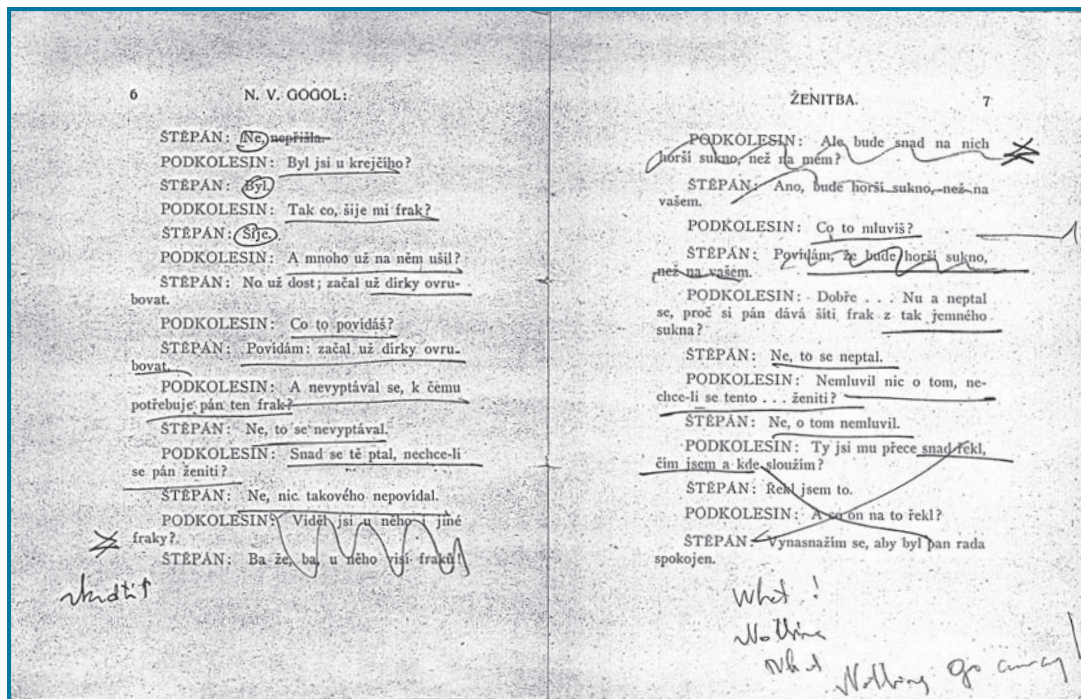 6 N. V. GOGOL:
ŠTĚPÁN: Ne, nepřišla.
PODKOLESIN: Byl jsi u krejčího?
ŠTĚPÁN: Byl.
PODKOLESIN: Tak co, šije mi frak?
ŠTĚPÁN: Šije.
PODKOLESIN: A mnoho už na něm ušil?
ŠTĚPÁN: No už dost; začal už dírky ovru-
bovat.
PODKOLESIN: Co to povídáš?
ŠTĚPÁN: Povídám: začal už dírky ovru-
bovat.
PODKOLESIN: A nevyptával se, k čemu
potřebuje pán ten frak?
ŠTĚPÁN: Ne, to se nevyptával.
PODKOLESIN: Snad se tě ptal, nechce-li
se pán ženiti?
ŠTĚPÁN: Ne, nic takového nepovídal.
PODKOLESIN: Viděl jsi u něho i jiné
fraky?
ŠTĚPÁN: Ba že, ba, u něho visí fraků!
ŽENITBA. 7
PODKOLESIN: Ale bude snad na nich
horší sukno, než na mém?
ŠTĚPÁN: Ano, bude horší sukno, než na
vašem.
PODKOLESIN: Co to mluvíš?
ŠTĚPÁN: Povídám, že bude horší sukno,
než na vašem.
PODKOLESIN: Dobře . . . Nu a neptal
se, proč si pán dává šíti frak z tak jemného
sukna?
ŠTĚPÁN: Ne, to se neptal.
PODKOLESIN: Nemluvil nic o tom, ne-
chce-li se tento . . . ženiti?
ŠTĚPÁN: Ne, o tom nemluvil.
PODKOLESIN: Ty jsi mu přece snad řekl,
čím jsem a kde sloužím?
ŠTĚPÁN: Řekl jsem to.
PODKOLESIN: A co on na to řekl?
ŠTĚPÁN: Vynasnažím se, aby byl pan rada
spokojen.
What !
Nothing
What
Nothing go away!